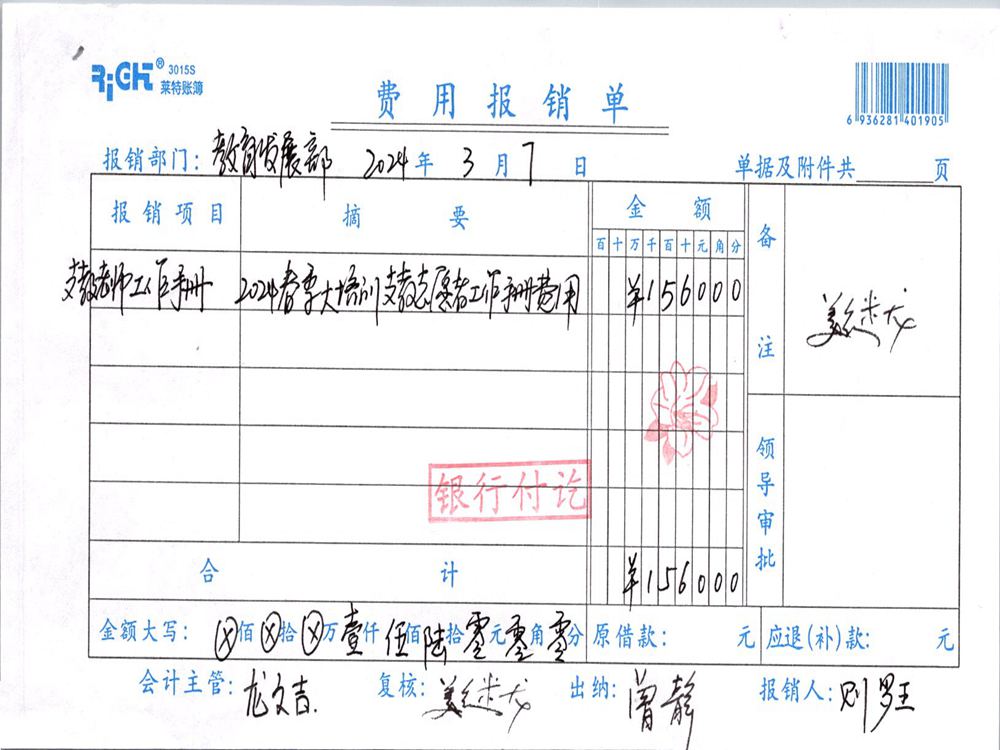 RiGHT® 3015S
莱特账簿
费用报销单
6 936281 401905
报销部门：教育发展部 2024年 3月 7日 单据及附件共 页
报销项目 摘要 金额 备注
百 十 万 千 百 十 元 角 分
支教老师工作手册 2024春季大培训支教志愿者工作手册费用 ¥156000
银行付讫
领导审批
合计 ¥156000
金额大写：ⓧ佰ⓧ拾ⓧ万壹仟伍佰陆拾零元零角零分 原借款： 元 应退(补)款: 元
会计主管：龙文吉. 复核: 出纳: 曾静 报销人: